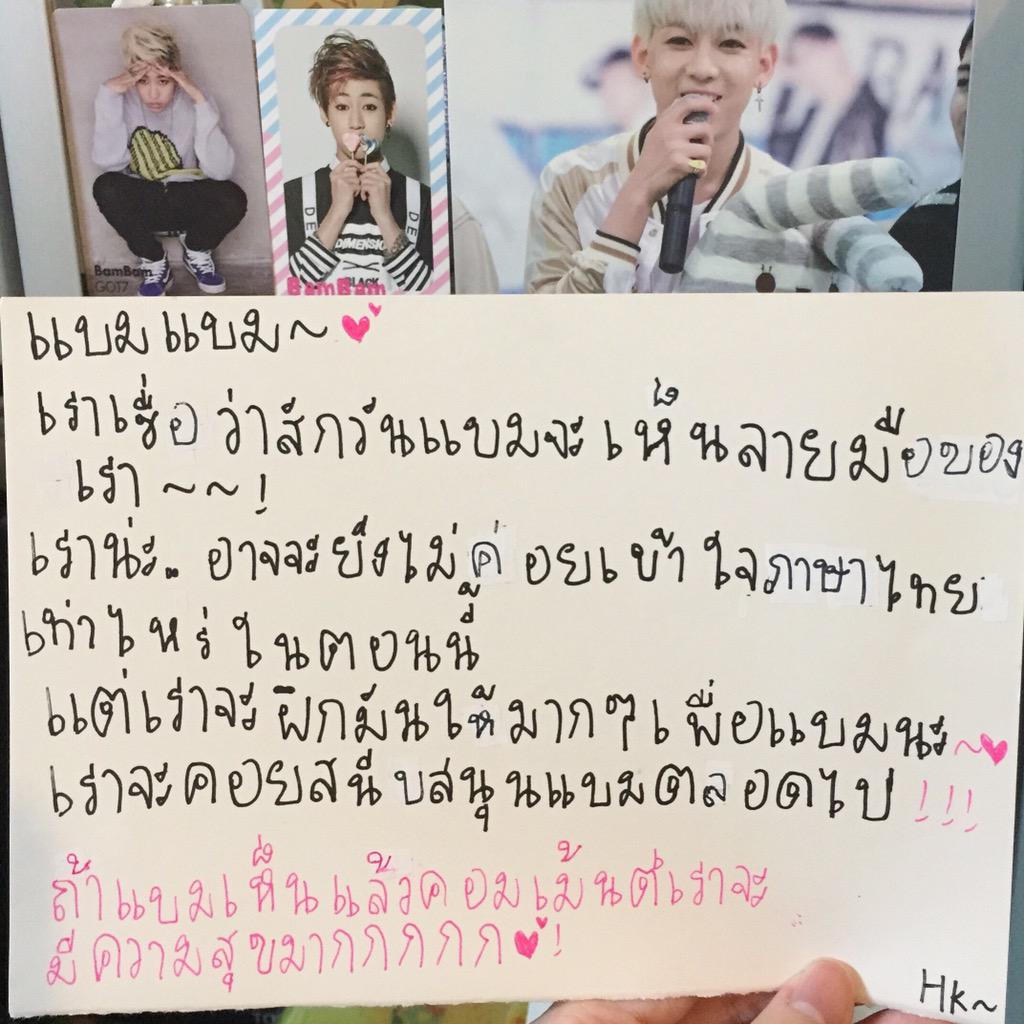 BamBam
GOT7
DE
DE
DIMENSION
BLACK
BamBam
แบมแบม~
เราเชื่อว่าสักวันแบมจะเห็นลายมือของ
เรา ~~!
เราน่ะ.. อาจจะยังไม่ค่อยเข้าใจภาษาไทย
เท่าไหร่ในตอนนี้
แต่เราจะฝึกมันให้มากๆเพื่อแบมนะ~
เราจะคอยสนับสนุนแบมตลอดไป !!!
ถ้าแบมเห็นแล้วคอมเม้นต์เราจะ
มีความสุขมากกกกก !
HK~